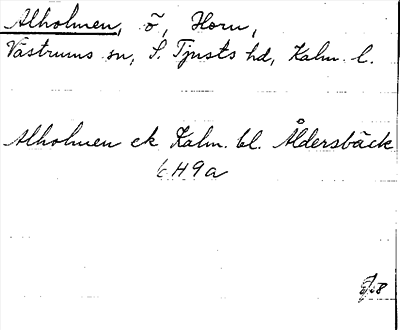 Alholmen, ö, Horn,
Västrums sn, S. Tjusts hd, Kalm. l.
Alholmen ek Kalm. bl. Åldersbäck
6H9a